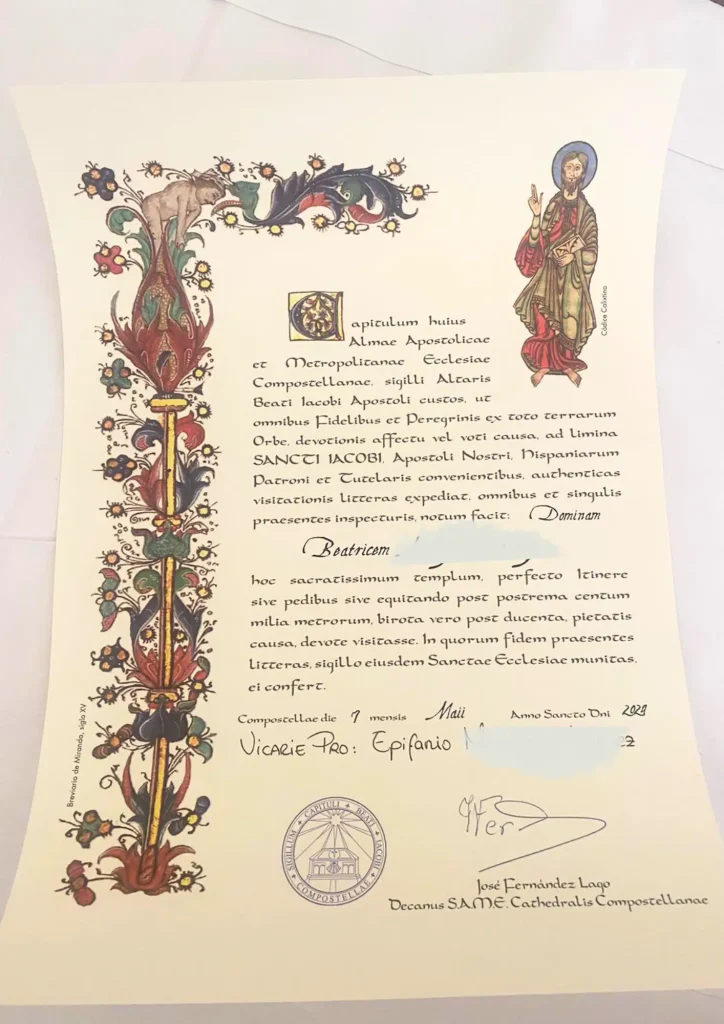 Capitulum huius
Almae Apostolicae
et Metropolitanae Ecclesiae
Compostellanae, sigilli Altaris
Beati Iacobi Apostoli custos, ut
omnibus Fidelibus et Peregrinis ex toto terrarum
Orbe, devotionis affectu vel voti causa, ad limina
SANCTI IACOBI, Apostoli Nostri, Hispaniarum
Patroni et Tutelaris convenientibus, authenticas
visitationis litteras expediat, omnibus et singulis
praesentes inspecturis, notum facit: Dominam
Beatricem
hoc sacratissimum templum, perfecto Itinere
sive pedibus sive equitando post postrema centum
milia metrorum, birota vero post ducenta, pietatis
causa, devote visitasse. In quorum fidem praesentes
litteras, sigillo eiusdem Sanctae Ecclesiae munitas,
ei confert.
Compostellae die 7 mensis Maii Anno Sancto Dni
Vicarie Pro: Epifanio
SIGILLUM CAPITULI BEATI IACOBI COMPOSTELLAE
José Fernández Lago
Decanus S.A.M.E. Cathedralis Compostellanae
Códice Calixtino
Breviario de Miranda, siglo XV